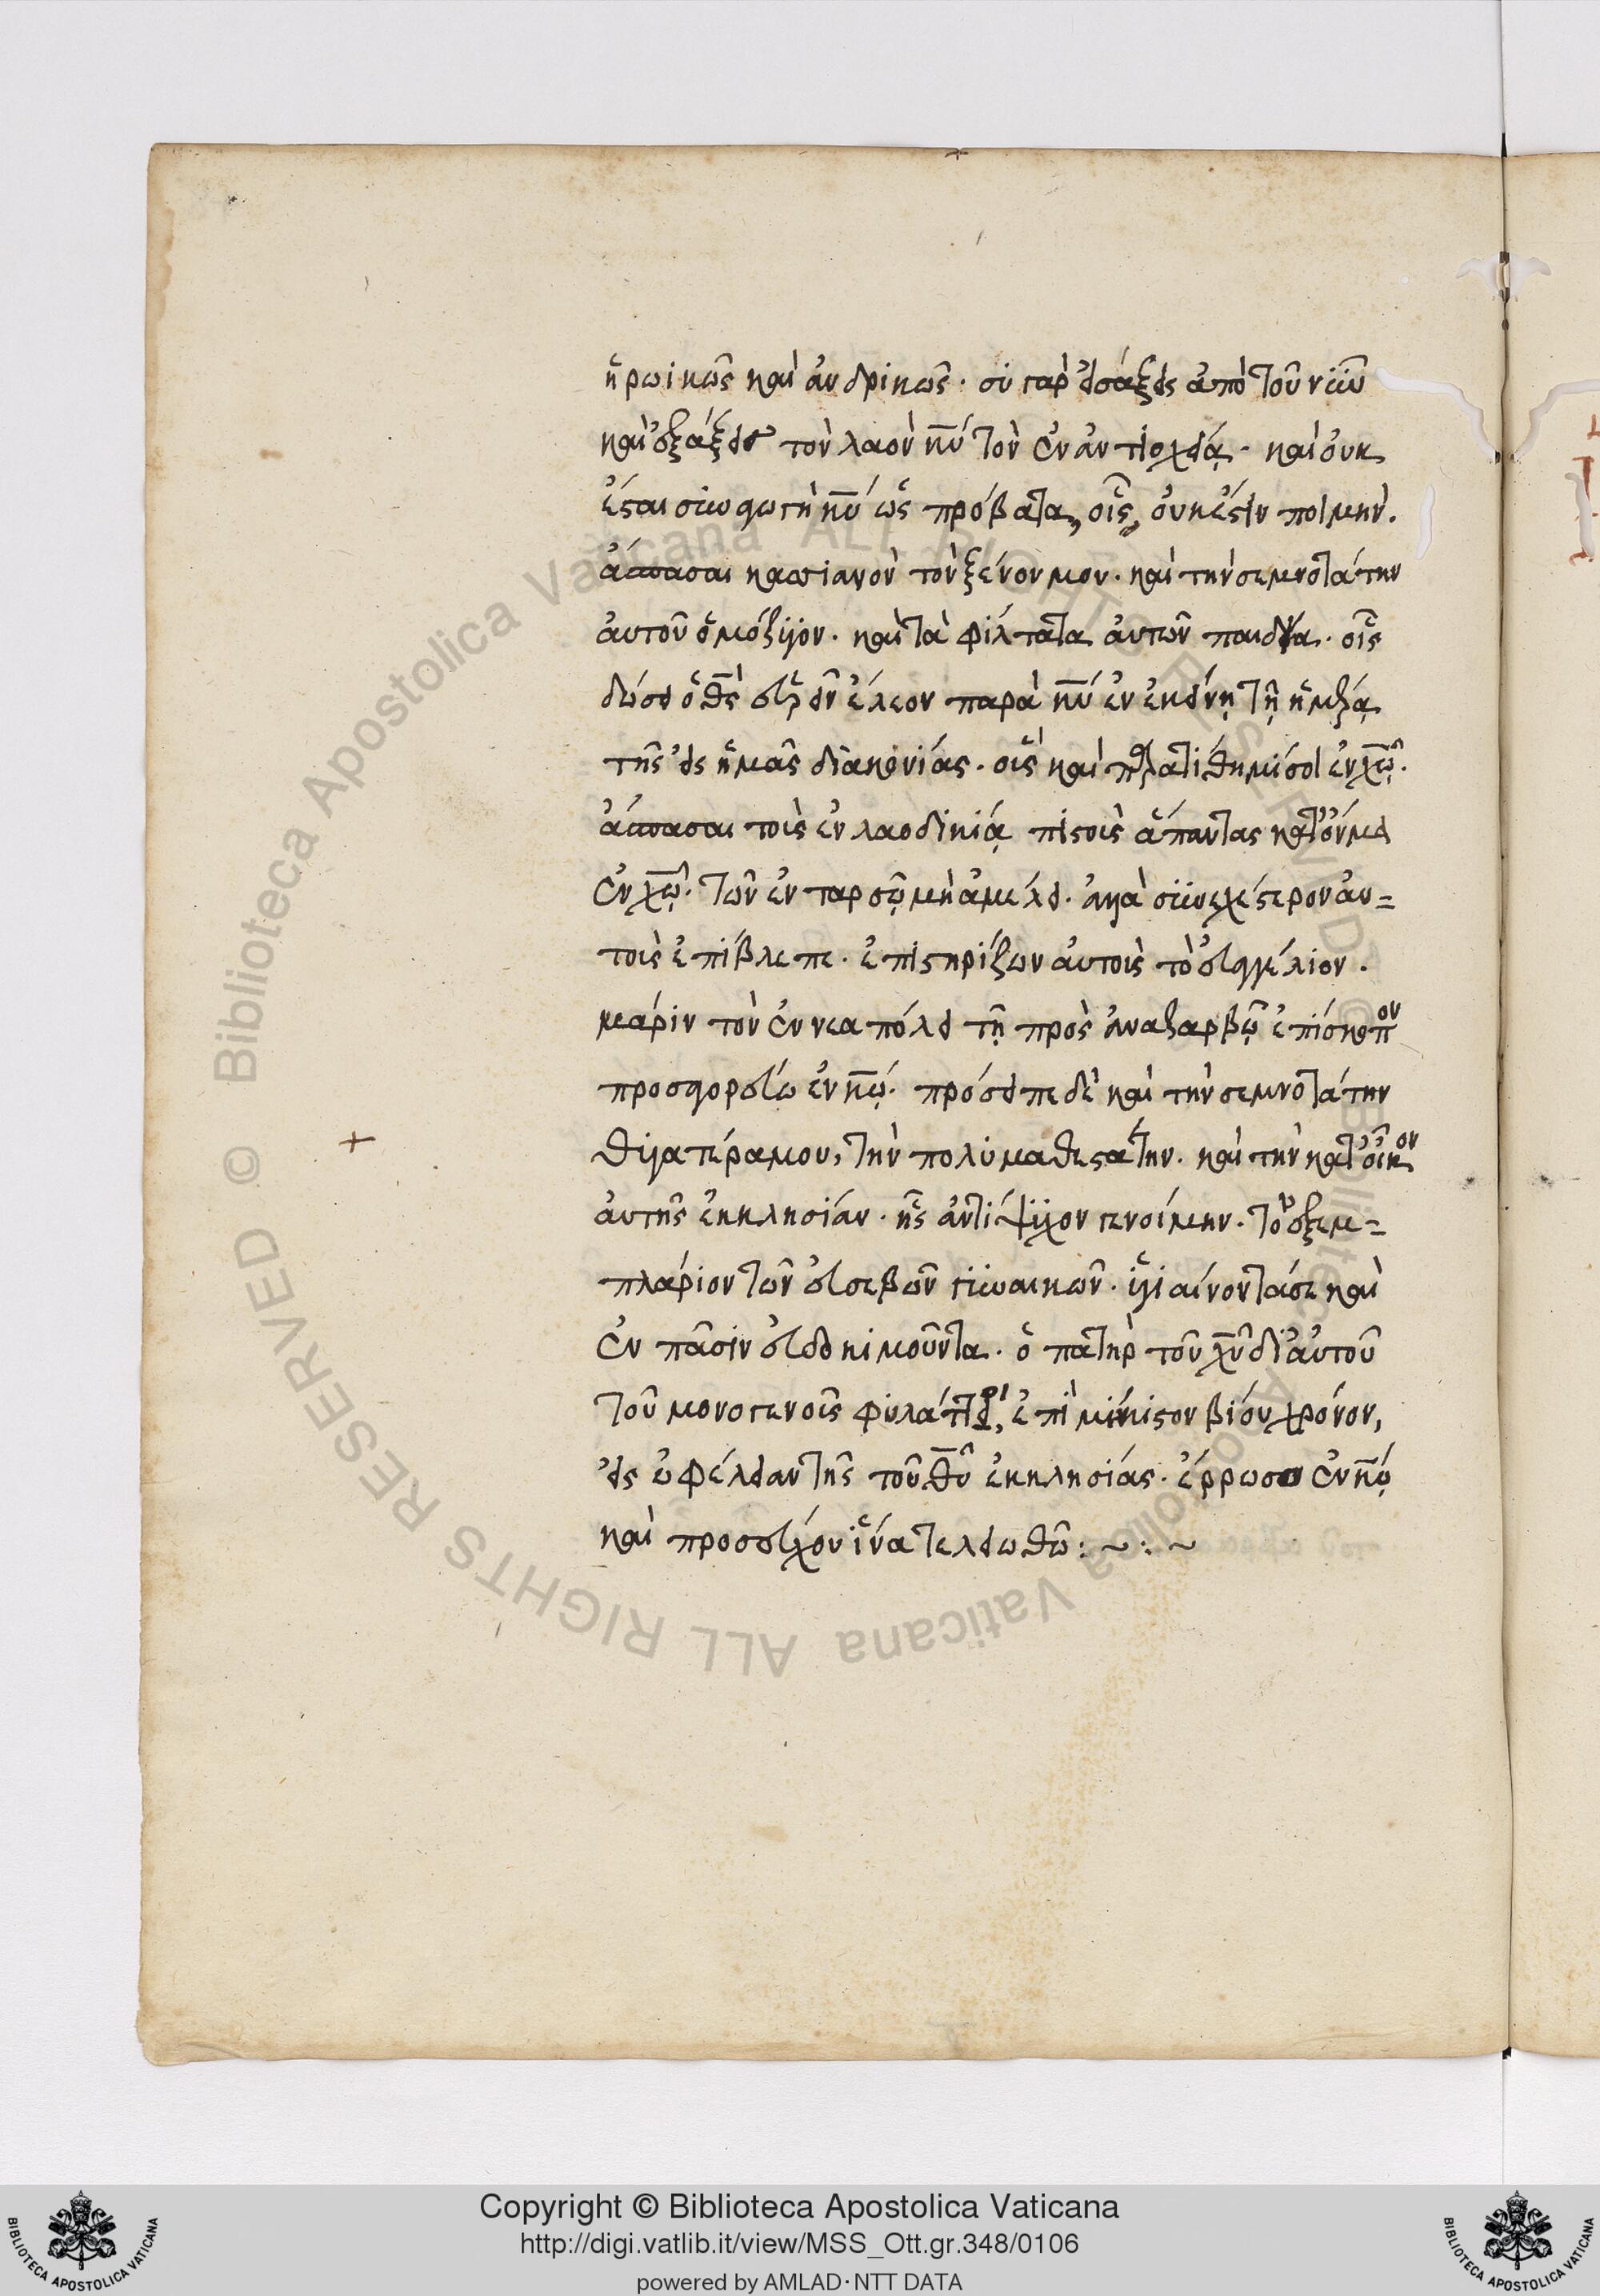 ἡρωϊκῶς καὶ ἀνδρικῶς· σὺ γὰρ εἰσάξεις ἀπὸ τοῦ νῦν
καὶ ἐξάξεις τὸν λαὸν κ̅υ̅ τὸν ἐν ἀντιοχείᾳ· καὶ οὐκ
ἔσται συναγωγὴ κ̅υ̅ ὡς πρόβατα, οἷς, οὐκ ἔστιν ποιμήν.
ἄσπασαι κασιανὸν τὸν ξένον μου· καὶ τὴν σεμνοτάτην
αὐτοῦ ὁμόζυγον· καὶ τὰ φίλτατα αὐτῶν παιδία· οἷς
δώσει ὁ θ̅ς̅ εὑρεῖν ἔλεον παρὰ κ̅υ̅ ἐν ἐκείνῃ τῇ ἡμέρᾳ
τῆς εἰς ἡμᾶς διακονίας· οἷς καὶ παρατίθημί σοι ἐν χ̅ῷ̅.
ἄσπασαι τοὺς ἐν λαοδικίᾳ πιστοὺς ἅπαντας κατ' ὄνομα
ἐν χ̅ῷ̅. τῶν ἐν ταρσῷ μὴ ἀμέλει· ἀλλὰ συνεχέστερον αὐ=
τοὺς ἐπίβλεπε· ἐπιστηρίζων αὐτοὺς τὸ εὐαγγέλιον.
μάριν τὸν ἐν νεαπόλει τῇ πρὸς ἀναζαρβῷ ἐπίσκοπον
προσαγορεύω ἐν κ̅ῷ̅. πρόσειπε δὲ καὶ τὴν σεμνοτάτην
θυγατέρα μου, τὴν πολυμαθεστάτην. καὶ τὴν κατ' οἶκον
αὐτῆς ἐκκλησίαν· ἧς ἀντίψυχον γενοίμην. τὸ ἐξεμ=
πλάριον τῶν εὐσεβῶν γυναικῶν· ὑγιαίνοντά σε καὶ
ἐν πᾶσιν εὐδοκιμοῦντα· ὁ πατὴρ τοῦ χ̅υ̅ δι' αὐτοῦ
τοῦ μονογενοῦς φυλάττοι, ἐπὶ μήκιστον βίου χρόνον,
εἰς ὠφέλειαν τῆς τοῦ θ̅υ̅ ἐκκλησίας· ἔρρωσο ἐν κ̅ῷ̅
καὶ προσεύχου ἵνα τελειωθῶ :~:~
Copyright © Biblioteca Apostolica Vaticana
http://digi.vatlib.it/view/MSS_Ott.gr.348/0106
powered by AMLAD·NTT DATA
BIBLIOTECA APOSTOLICA VATICANA
BIBLIOTECA APOSTOLICA VATICANA
© Biblioteca Apostolica Vaticana ALL RIGHTS RESERVED © Biblioteca Apostolica Vaticana ALL RIGHTS RESERVED